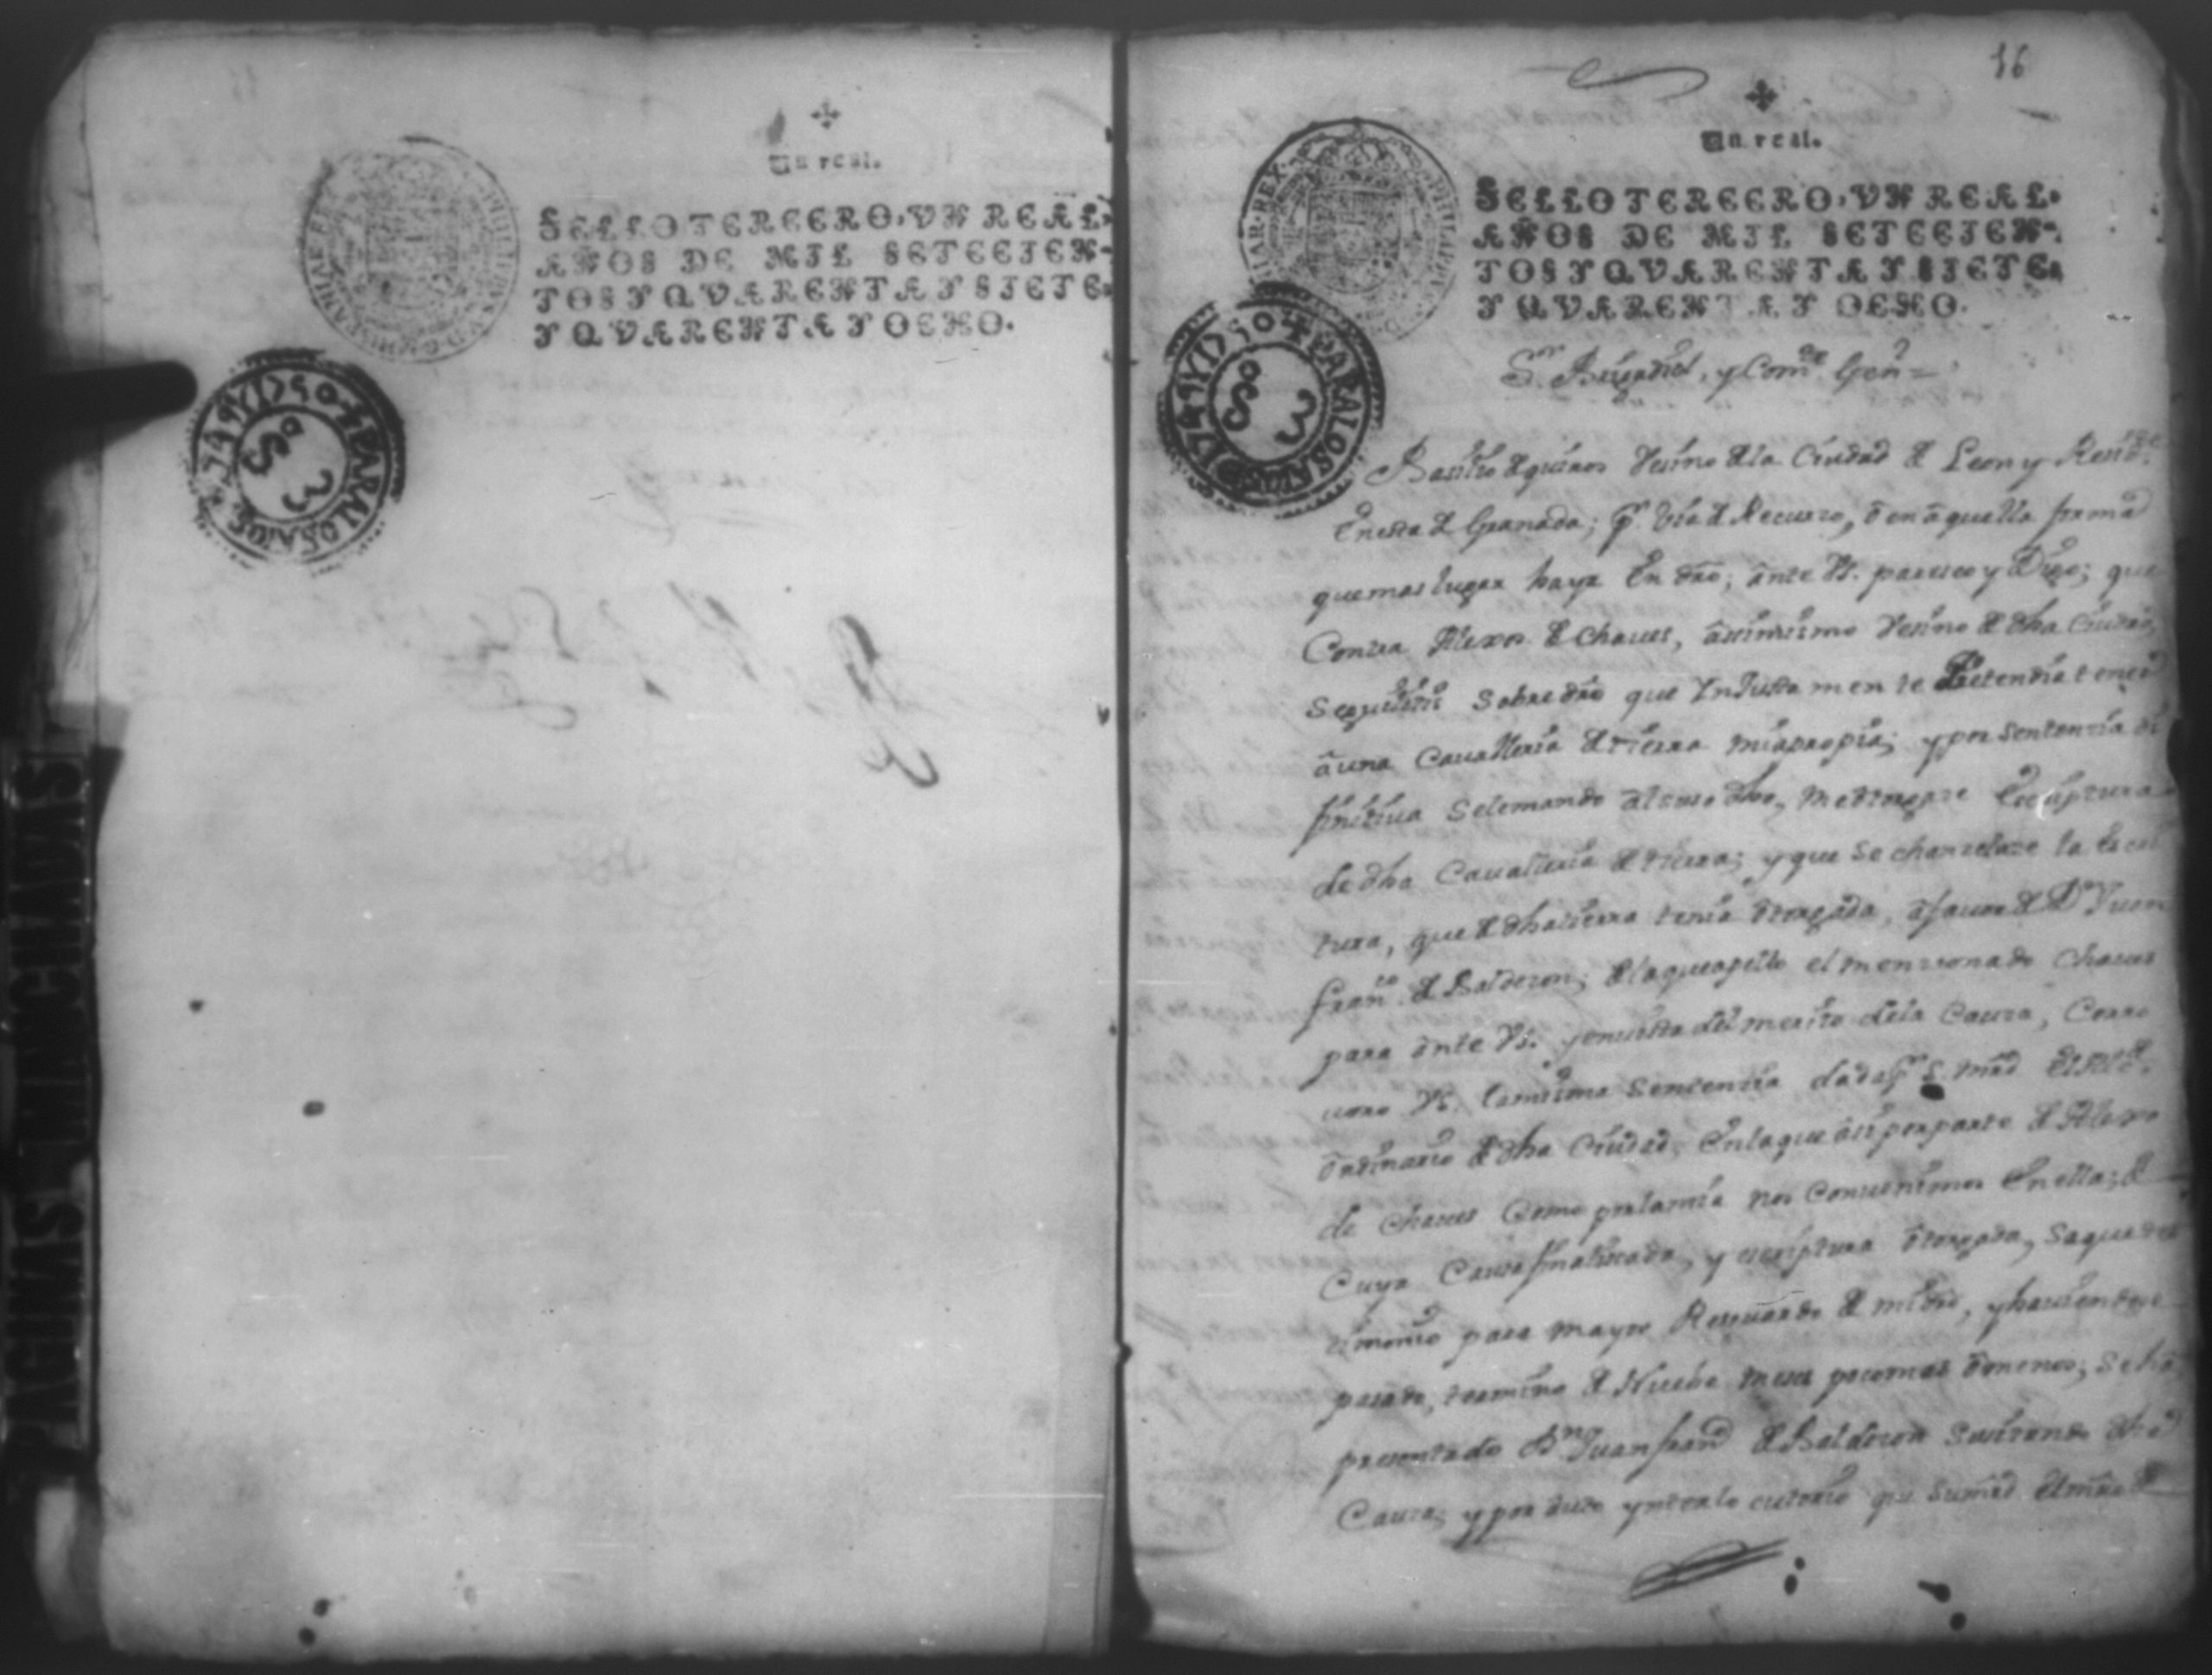 Un real.
SELLO TERCERO, VN REAL,
AÑOS DE MIL SETECIEN-
TOS Y QVARENTA Y SIETE,
Y QVARENTA Y OCHO.
PARA LOS AÑOS D 1749 Y 1750
So 3
16
Un real.
SELLO TERCERO, VN REAL,
AÑOS DE MIL SETECIEN-
TOS Y QVARENTA Y SIETE,
Y QVARENTA Y OCHO.
PARA LOS AÑOS D 1749 Y 1750
So 3
Sor. y Comte. Genl =
de quiros Vesino de la Ciudad de Leon y Residte
En esta de Granada; pr. Via de Recurso, o en aquella forma
que mas lugar haya En dro, ante Vs. paresco y Digo; que
Contra Alexos de Chaues, asimismo Vesino de dha Ciudad,
sobre dro que Injustamente Pretendia tener
a una Cavalleria de tierra mia propia; y por sentencia di
finitiua se le mando al suso dho, me otorgase Escriptura
de dha Cavalleria de tierra; y que se chanzelase la Escrip
tura, que de dha tierra tenia otorgada, a fauor de Dn Juan
Franco. de Balderon; de la que apello el menzionado Chaues
para ante Vs. y en vista del merito de la Causa, Corro
uoro Vs. la misma sentenzia dada pr. s. mrd el Alcde.
ordinario de dha Ciudad, En la que asi por parte de Alexo
de Chaues Como por la mia nos Conuenimos En ella; de
Cuya Causa finalisada, y escriptura otorgada, saque tes
timonio para mayor Resguardo de mi dro, y hauiendose
pasado, termino de Nuebe meses poco mas o menos; se ha
presentado Dn Juan Franco de Balderon dha
Causa; y por Auto ynterlocutorio que su mrd